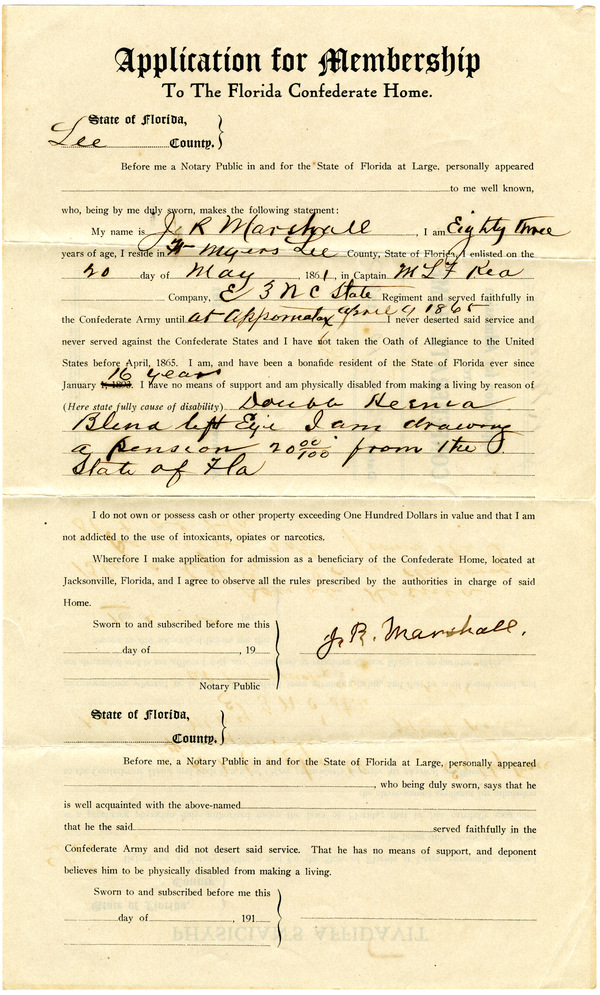 Application for Membership
To The Florida Confederate Home.
State of Florida,
Lee County.
Before me a Notary Public in and for the State of Florida at Large, personally appeared
to me well known,
who, being by me duly sworn, makes the following statement:
My name is J. R Marshall, I am Eighty Three
years of age, I reside in Ft Myers Lee County, State of Florida, I enlisted on the
20 day of May, 1861, in Captain
Company, E 3 N C State Regiment and served faithfully in
the Confederate Army until at Appomatox april 9 1865 I never deserted said service and
never served against the Confederate States and I have not taken the Oath of Allegiance to the United
States before April, 1865. I am, and have been a bonafide resident of the State of Florida ever since
16 years
January 1, 1893. I have no means of support and am physically disabled from making a living by reason of
(Here state fully cause of disability) Double Hernia
Blind left Eye I am drawing
a pension 20 00/100 from the
State of Fla
I do not own or possess cash or other property exceeding One Hundred Dollars in value and that I am
not addicted to the use of intoxicants, opiates or narcotics.
Wherefore I make application for admission as a beneficiary of the Confederate Home, located at
Jacksonville, Florida, and I agree to observe all the rules prescribed by the authorities in charge of said
Home.
Sworn to and subscribed before me this
day of , 19
J. R. Marshall.
Notary Public
State of Florida,
County.
Before me, a Notary Public in and for the State of Florida at Large, personally appeared
, who being duly sworn, says that he
is well acquainted with the above-named
that he the said served faithfully in the
Confederate Army and did not desert said service. That he has no means of support, and deponent
believes him to be physically disabled from making a living.
Sworn to and subscribed before me this
day of , 191
PHYSICIAN'S AFFIDAVIT